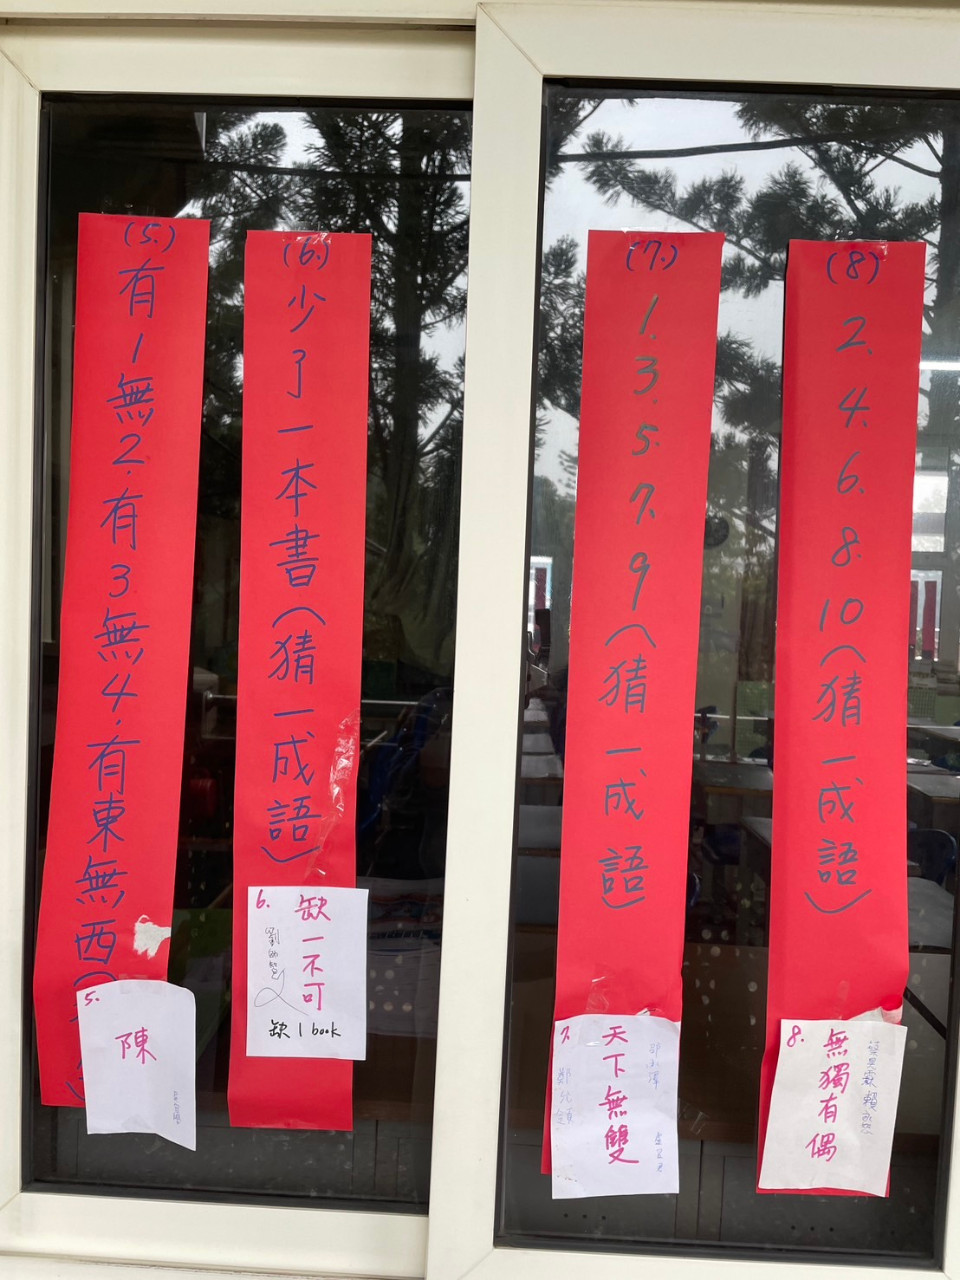 (5.)
有1無2.有3無4.有東無西(
5.
陳
(6.)
少了一本書(猜一成語)
6.
缺一不可
缺1book
(7.)
1.3.5.7.9(猜一成語)
7.
天下無雙
(8)
2.4.6.8.10(猜一成語)
8.
無獨有偶